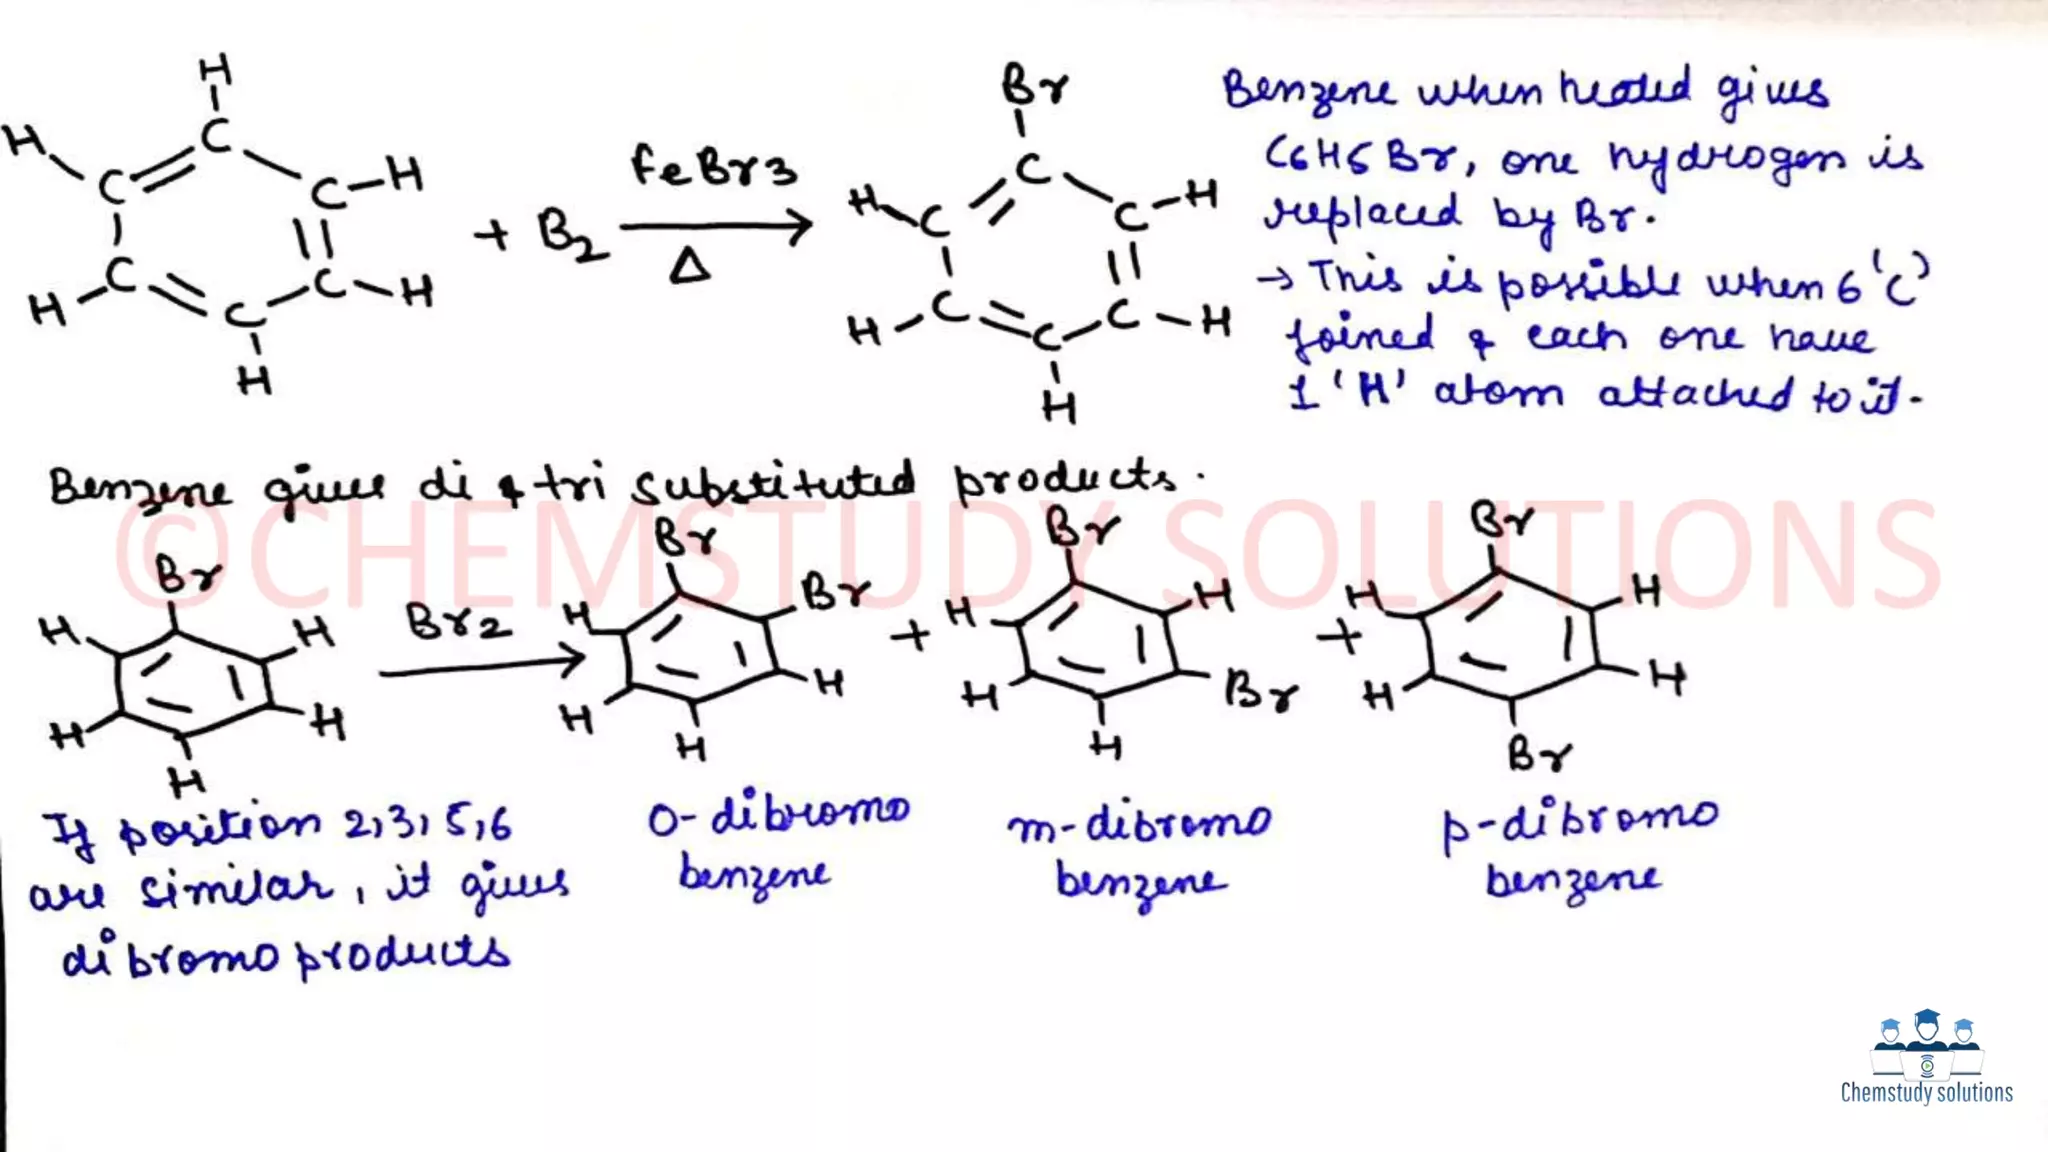 H
H C C-H
H-C C-H
C
H
+ B2
FeBr3
Δ
Br
H C C-H
H-C C-H
C
H
Benzene when heated gives
C6H5Br, one hydrogen is
replaced by Br.
→ This is possible when 6 'C'
joined & each one have
1 'H' atom attached to it.
Benzene gives di & tri substituted products.
©CHEMSTUDY SOLUTIONS
Br
H H
H H
H
Br2
Br
H Br
H H
H
+
Br
H H
H Br
H
+
Br
H H
H H
Br
If position 2,3,5,6
are similar, it gives
dibromo products
o-dibromo
benzene
m-dibromo
benzene
p-dibromo
benzene
Chemstudy solutions